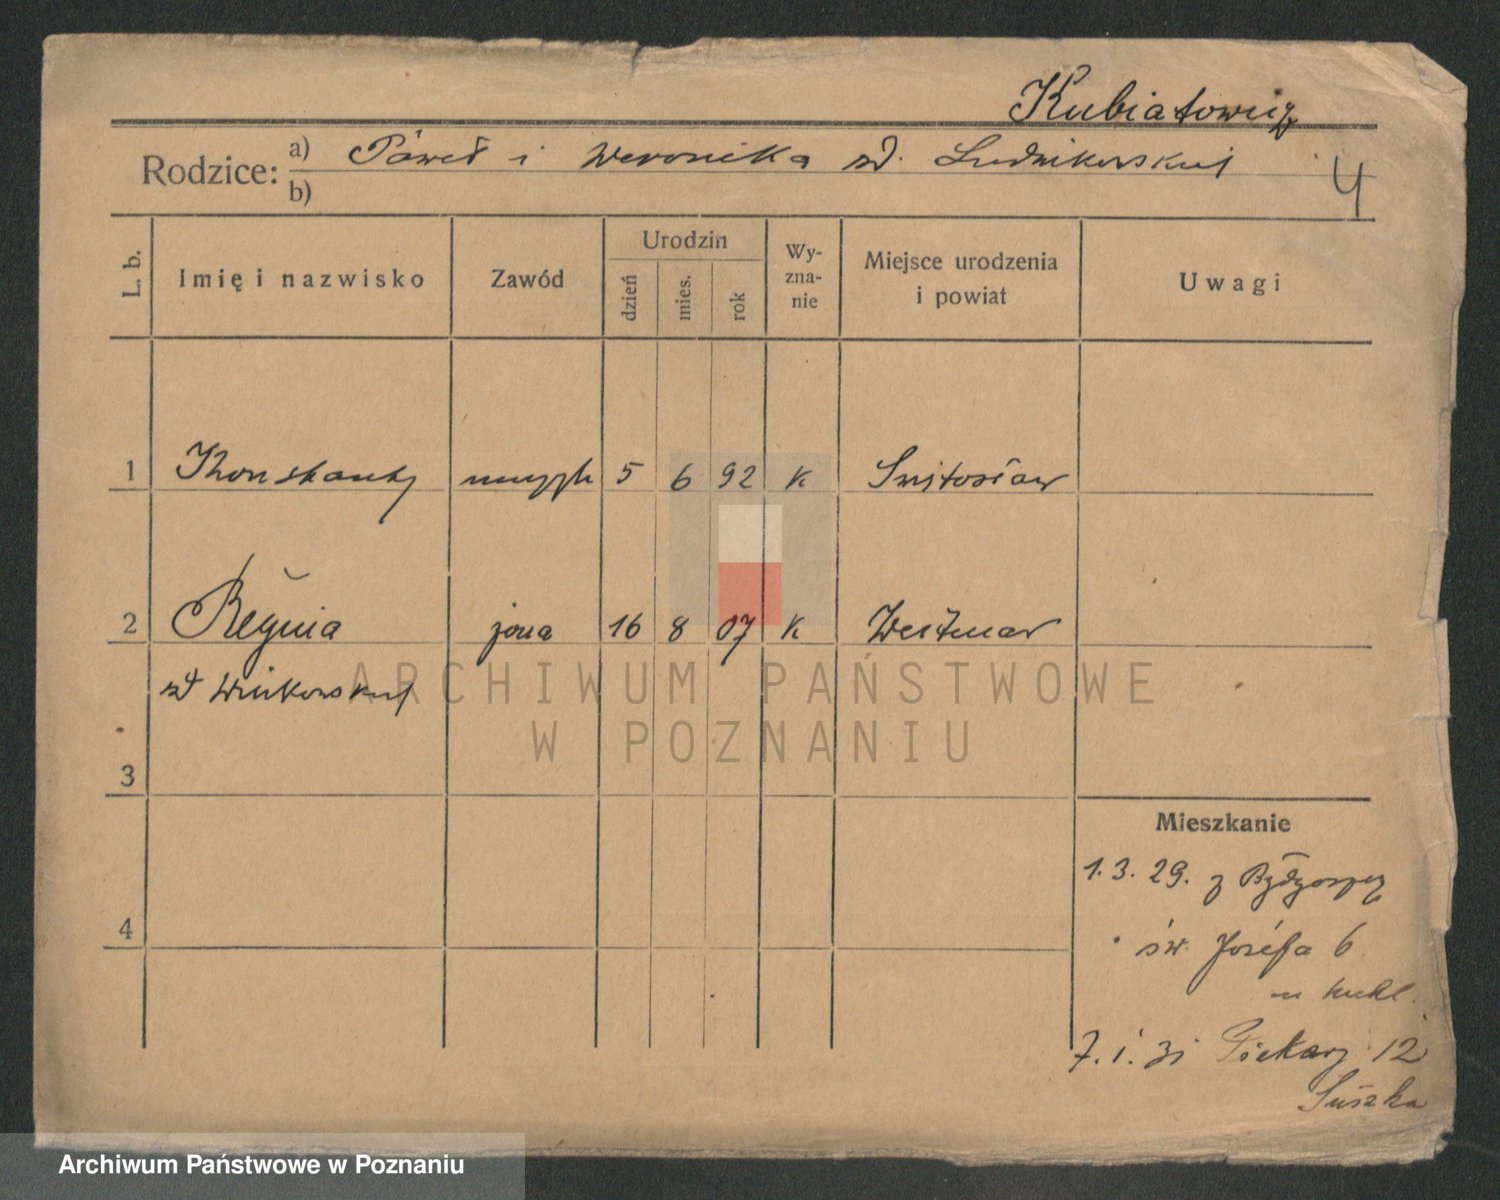 Kubiatowicz
Rodzice: a) Paweł i Weronika zd.
b)
4
L. b.
Imię i nazwisko
Zawód
Urodzin
dzień
mies.
rok
Wy-
zna-
nie
Miejsce urodzenia
i powiat
Uwagi
1 Konstanty muzyk 5 6 92 k
2 Regina żona 16 8 07 k
zd
3
4
ARCHIWUM PAŃSTWOWE
W POZNANIU
Mieszkanie
1. 3. 29. z Bydgoszczy
św. Józefa 6
7. 1. 31 Piekary 12
Suszka
Archiwum Państwowe w Poznaniu